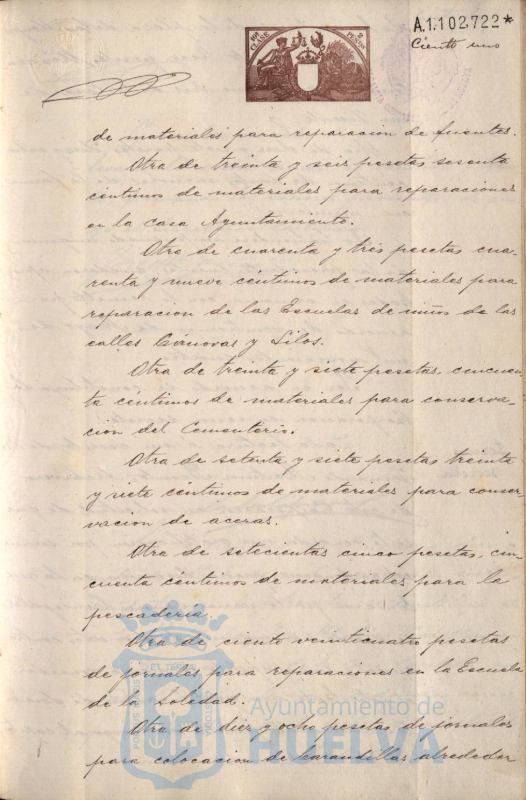 10ª CLASE
2 PESETAS
A.1.102.722*
Ciento uno
de materiales para reparacion de fuentes.
Otra de treinta y seis pesetas sesenta
céntimos de materiales para reparaciones
en la casa Ayuntamiento.
Otra de cuarenta y tres pesetas cua-
renta y nueve céntimos de materiales para
reparacion de las Escuelas de niños de las
calles Cánovas y Silos.
Otra de treinta y siete pesetas, cincuen-
ta céntimos de materiales para conserva-
cion del Cementerio.
Otra de setenta y siete pesetas treinta
y siete céntimos de materiales para conser-
vacion de aceras.
Otra de setecientas cinco pesetas, cin-
cuenta céntimos de materiales para la
pescadería.
Otra de ciento veinticuatro pesetas
de jornales para reparaciones en la Escuela
de la Soledad.
Otra de diez y ocho pesetas de jornales
para colocacion de barandillas alrededor
Ayuntamiento de
HUELVA